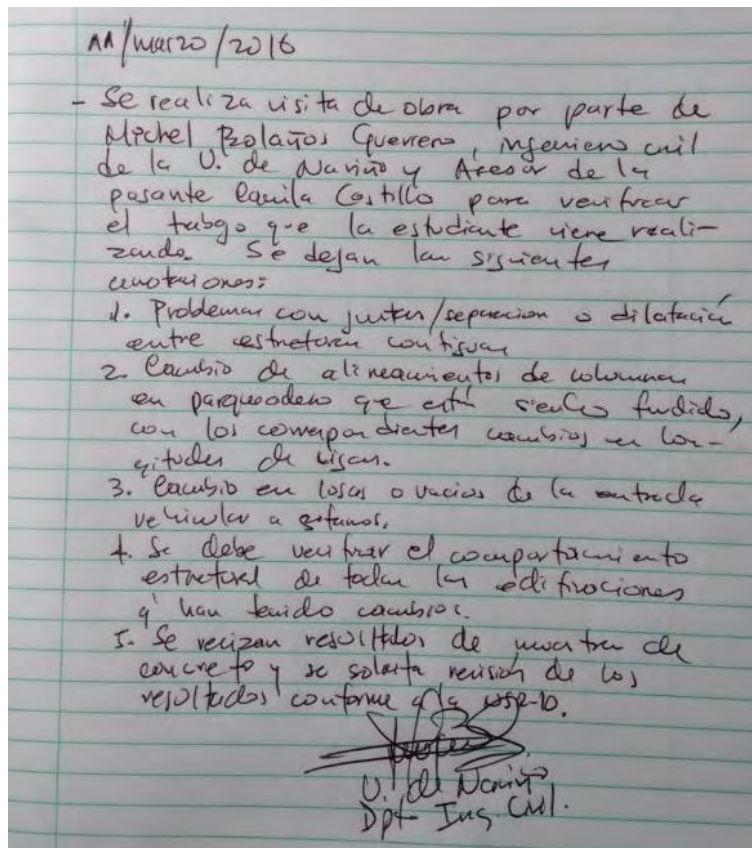 11/marzo/2016
- Se realiza visita de obra por parte de
Michel Bolaños Guerrero, ingeniero civil
de la U. de Nariño y Asesor de la
pasante Camila Castillo para verificar
el trabajo que la estudiante viene reali-
zando. Se dejan las siguientes
anotaciones:
1. Problemas con juntas/separacion o dilatación
entre estructuras contiguas
2. Cambio de alineamientos de columnas
en parqueadero que está siendo fundido,
con los correspondientes cambios en lon-
gitudes de vigas.
3. Cambio en losas o vacios de la entrada
vehicular a sótanos.
4. Se debe verificar el comportamiento
estructural de todas las edificaciones
q' han tenido cambios.
5. Se revizan resultados de muestra de
concreto y se solicita revisión de los
resultados conforme a la NSR-10.
U. de Nariño
Dpt- Ing. Civil.